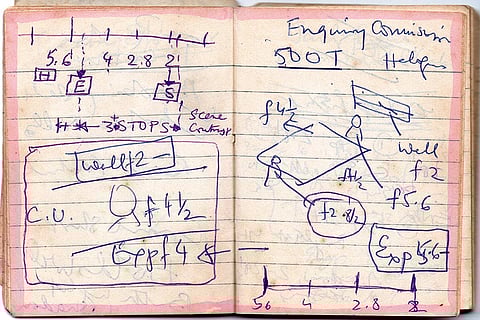 5.6 4 2.8 2
H E S
H 3 STOPS Scene
Contrast
Wall f2
C.U. f 4 1/2
Exp f 4
Enquiry Commission
500T Halogen
f 4 1/2
Wall
f 2
f 4 1/2
f 5.6
f 2.8/2
Exp
5.6 4 2.8 2